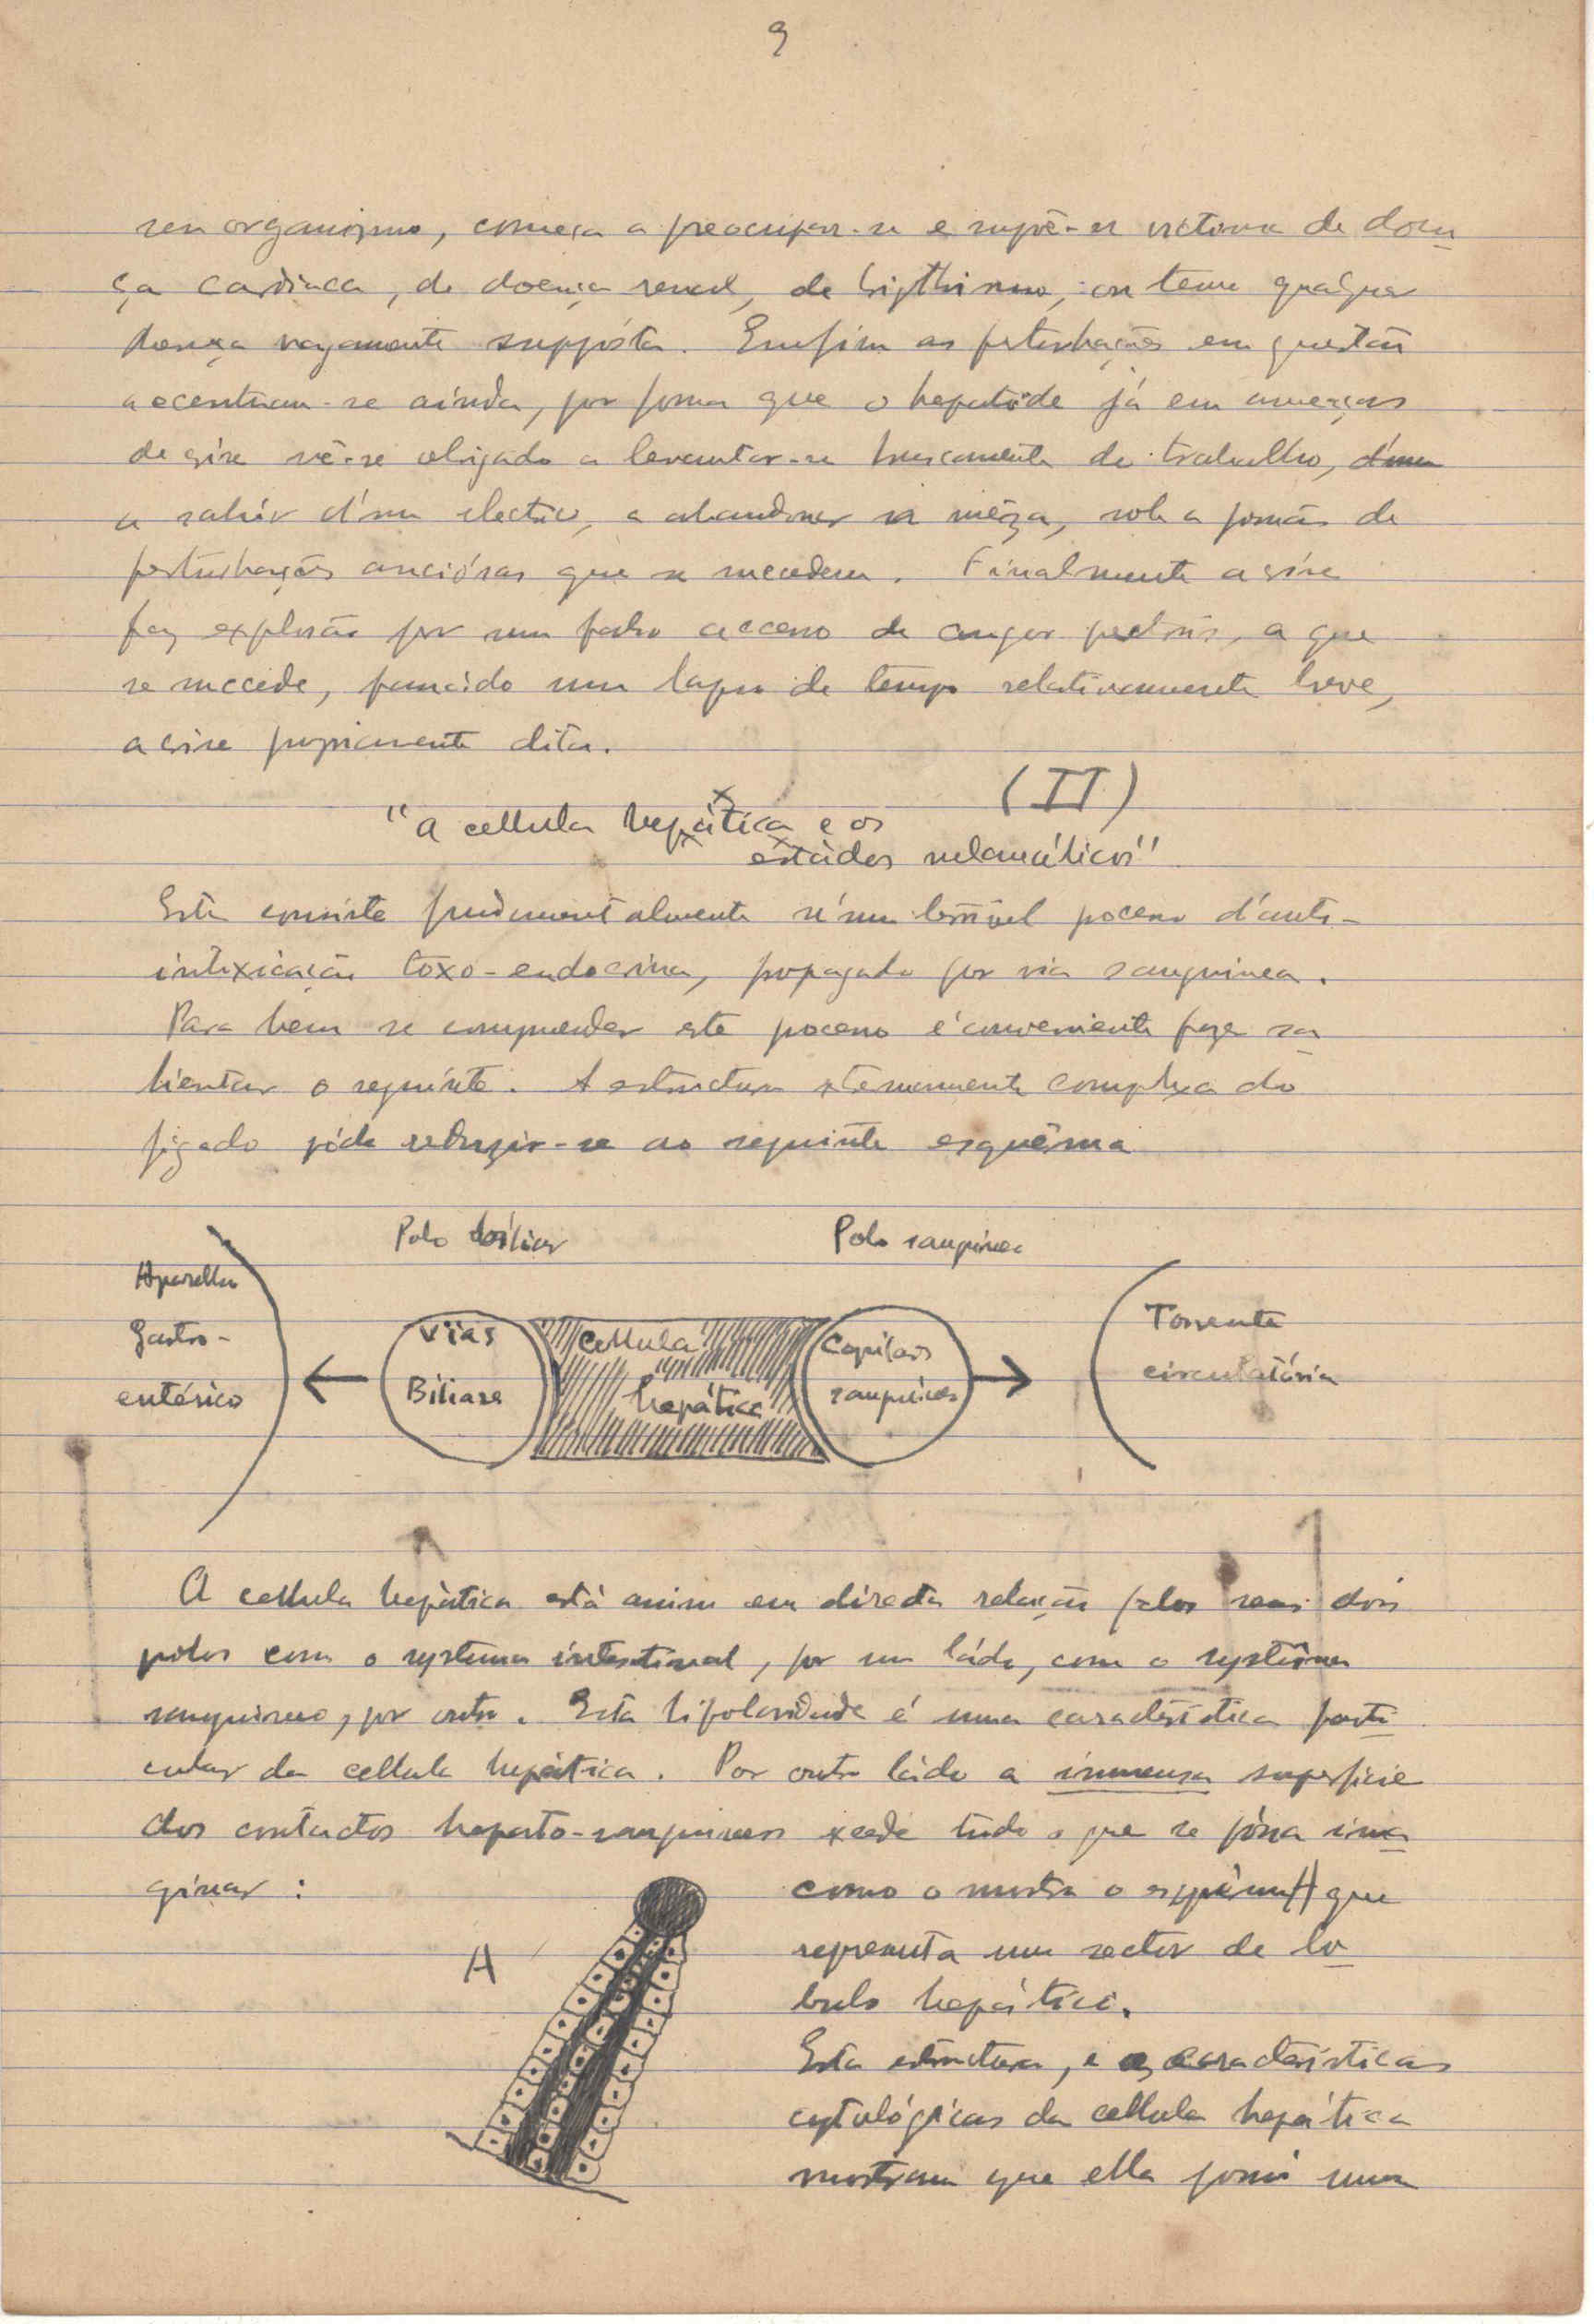 9
seu organismo, começa a preoccupar-se e supõe-se victima de doen
ça cardiaca, de doença renal, de brigthismo, ou teme qualquer
doença vagamente suppósta. Emfim as perturbações em questão
accentuam-se ainda, por forma que o hepatóide já em ameaços
de crise vê-se obrigado a levantar-se bruscamente do trabalho,
a sahir d'um electrico, a abandonar a mêza, sob a pressão de
perturbações anciósas que se succedem. Finalmente a crise
faz explosão por um falso accesso de angor pectoris, a que
se succede, passado um lapso de tempo relativamente breve,
a crise propriamente dita.
(II)
"A cellula hepática e os
estádos melancólicos"
Esta consiste fundamentalmente n'um terrivel processo d'auto-
intoxicação toxo-endocrina, propagado por via sanguinea.
Para bem se comprender este processo é conveniente fazer sa
lientar o seguinte. A estructura extremamente complexa do
figado póde reduzir-se ao seguinte esquêma
Polo biliar
Polo sanguineo
Aparelho
Gastro-
entérico
Vias
Biliares
Cellula
hepática
Capilares
sanguineos
Torrente
circulatória
A cellula hepática está assim em directa relação pelos seus dois
polos com o systema intestinal, por um ládo, com o systêma
sanguineo, por outro. Esta bipolaridade é uma caracteristica parti
cular da cellula hepática. Por outro ládo a immensa superficie
dos contactos hepato-sanguineos excede tudo o que se póssa ima
ginar :
A
como o mostra o esquêma A que
representa um sector de lo
bulo hepático.
Esta estructura, e as caracteristicas
cytológicas da cellula hepática
mostram que ella possui uma